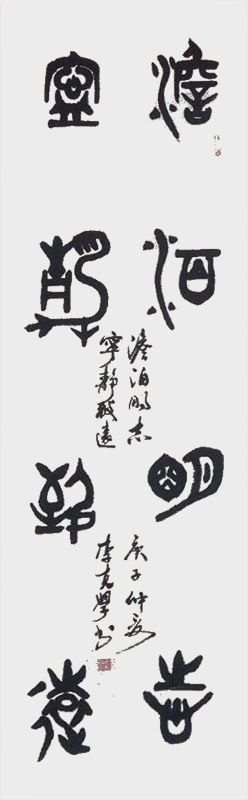 澹泊明志
寧靜致遠
澹泊明志
寧靜致遠
庚子仲夏
李克學书